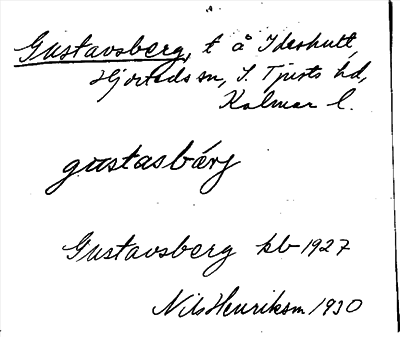 Gustavsberg, t å Ideshult,
Hjorteds sn, S. Tjusts hd,
Kalmar l.
gustasbärj
Gustavsberg kb 1927
Nils Henriksm 1930